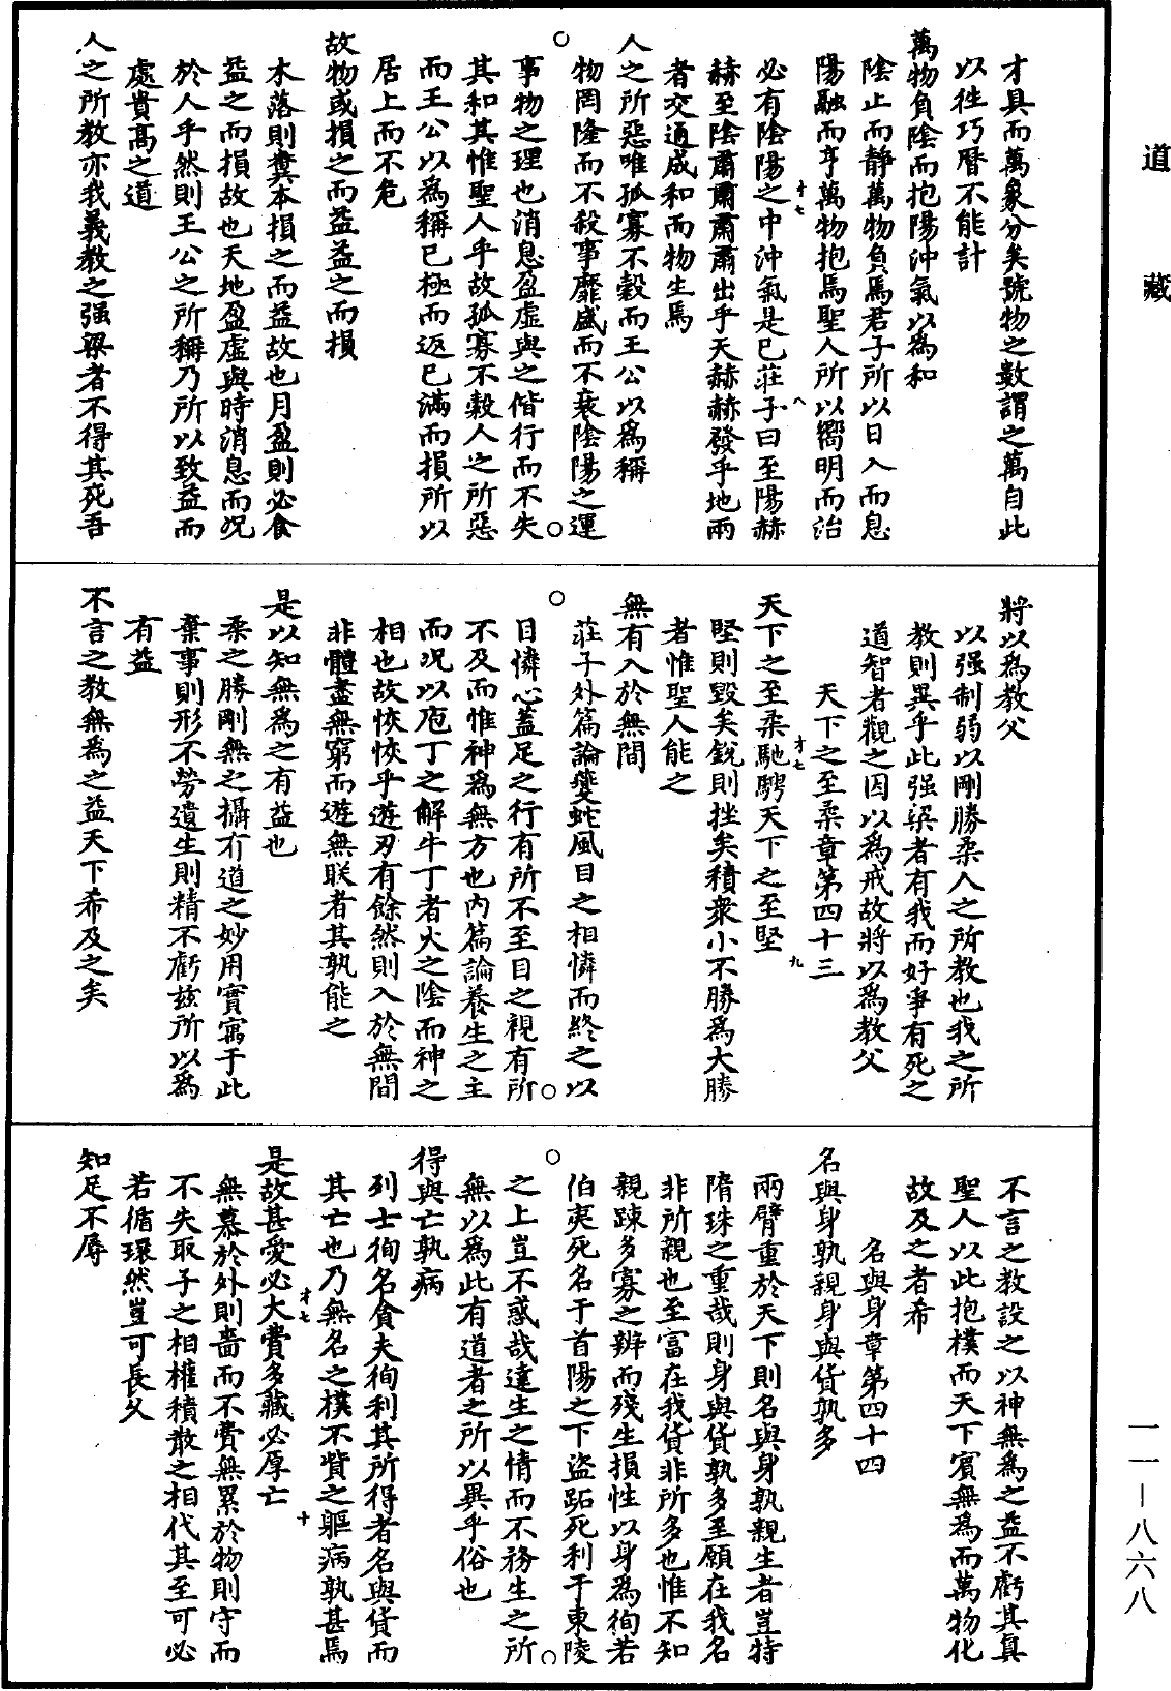 道藏
才具而萬象分矣號物之數謂之萬自此
以徃巧曆不能計
萬物負陰而抱陽沖氣以為和
陰止而靜萬物負焉君子所以日入而息
陽融而亨萬物抱焉聖人所以嚮明而治
必有陰陽之中沖氣是已莊子曰至陽赫
赫至陰肅肅肅肅出乎天赫赫發乎地兩
者交通成和而物生焉
人之所惡唯孤寡不糓而王公以為稱
物罔隆而不殺事靡盛而不衰陰陽之運
事物之理也消息盈虛與之偕行而不失
其和其惟聖人乎故孤寡不穀人之所惡
而王公以為稱已極而返已滿而損所以
居上而不危
故物或損之而益益之而損
木落則糞本損之而益故也月盈則必食
益之而損故也天地盈虛與時消息而况
於人乎然則王公之所稱乃所以致益而
處貴高之道
人之所教亦我義教之强梁者不得其死吾
將以為教父
以强制弱以剛勝柔人之所教也我之所
教則異乎此强梁者有我而好爭有死之
道智者觀之因以為戒故將以為教父
天下之至柔章第四十三
天下之至柔馳騁天下之至堅
堅則毀矣銳則挫矣積衆小不勝為大勝
者惟聖人能之
無有入於無間
莊子外篇論夔蛇風目之相憐而終之以
目憐心蓋足之行有所不至目之視有所
不及而惟神為無方也内篇論養生之主
而况以庖丁之解牛丁者火之陰而神之
相也故恢恢乎遊刃有餘然則入於無間
非體盡無窮而遊無朕者其孰能之
是以知無為之有益也
柔之勝剛無之攝有道之妙用實寓于此
棄事則形不勞遺生則精不虧茲所以為
有益
不言之教無為之益天下希及之矣
不言之教設之以神無為之益不虧其真
聖人以此抱樸而天下賓無為而萬物化
故及之者希
名與身章第四十四
名與身孰親身與貨孰多
兩臂重於天下則名與身孰親生者豈特
隋珠之重哉則身與貨孰多至願在我名
非所親也至富在我貨非所多也惟不知
親踈多寡之辨而殘生損性以身為徇若
伯夷死名于首陽之下盜跖死利于東陵
之上豈不惑哉達生之情而不務生之所
無以為此有道者之所以異乎俗也
得與亡孰病
列士徇名貪夫徇利其所得者名與貨而
其亡也乃無名之樸不貲之軀病孰甚焉
是故甚愛必大費多藏必厚亡
無慕於外則嗇而不費無累於物則守而
不失取予之相權積散之相代其至可必
若循環然豈可長父
知足不辱
一一—八六八